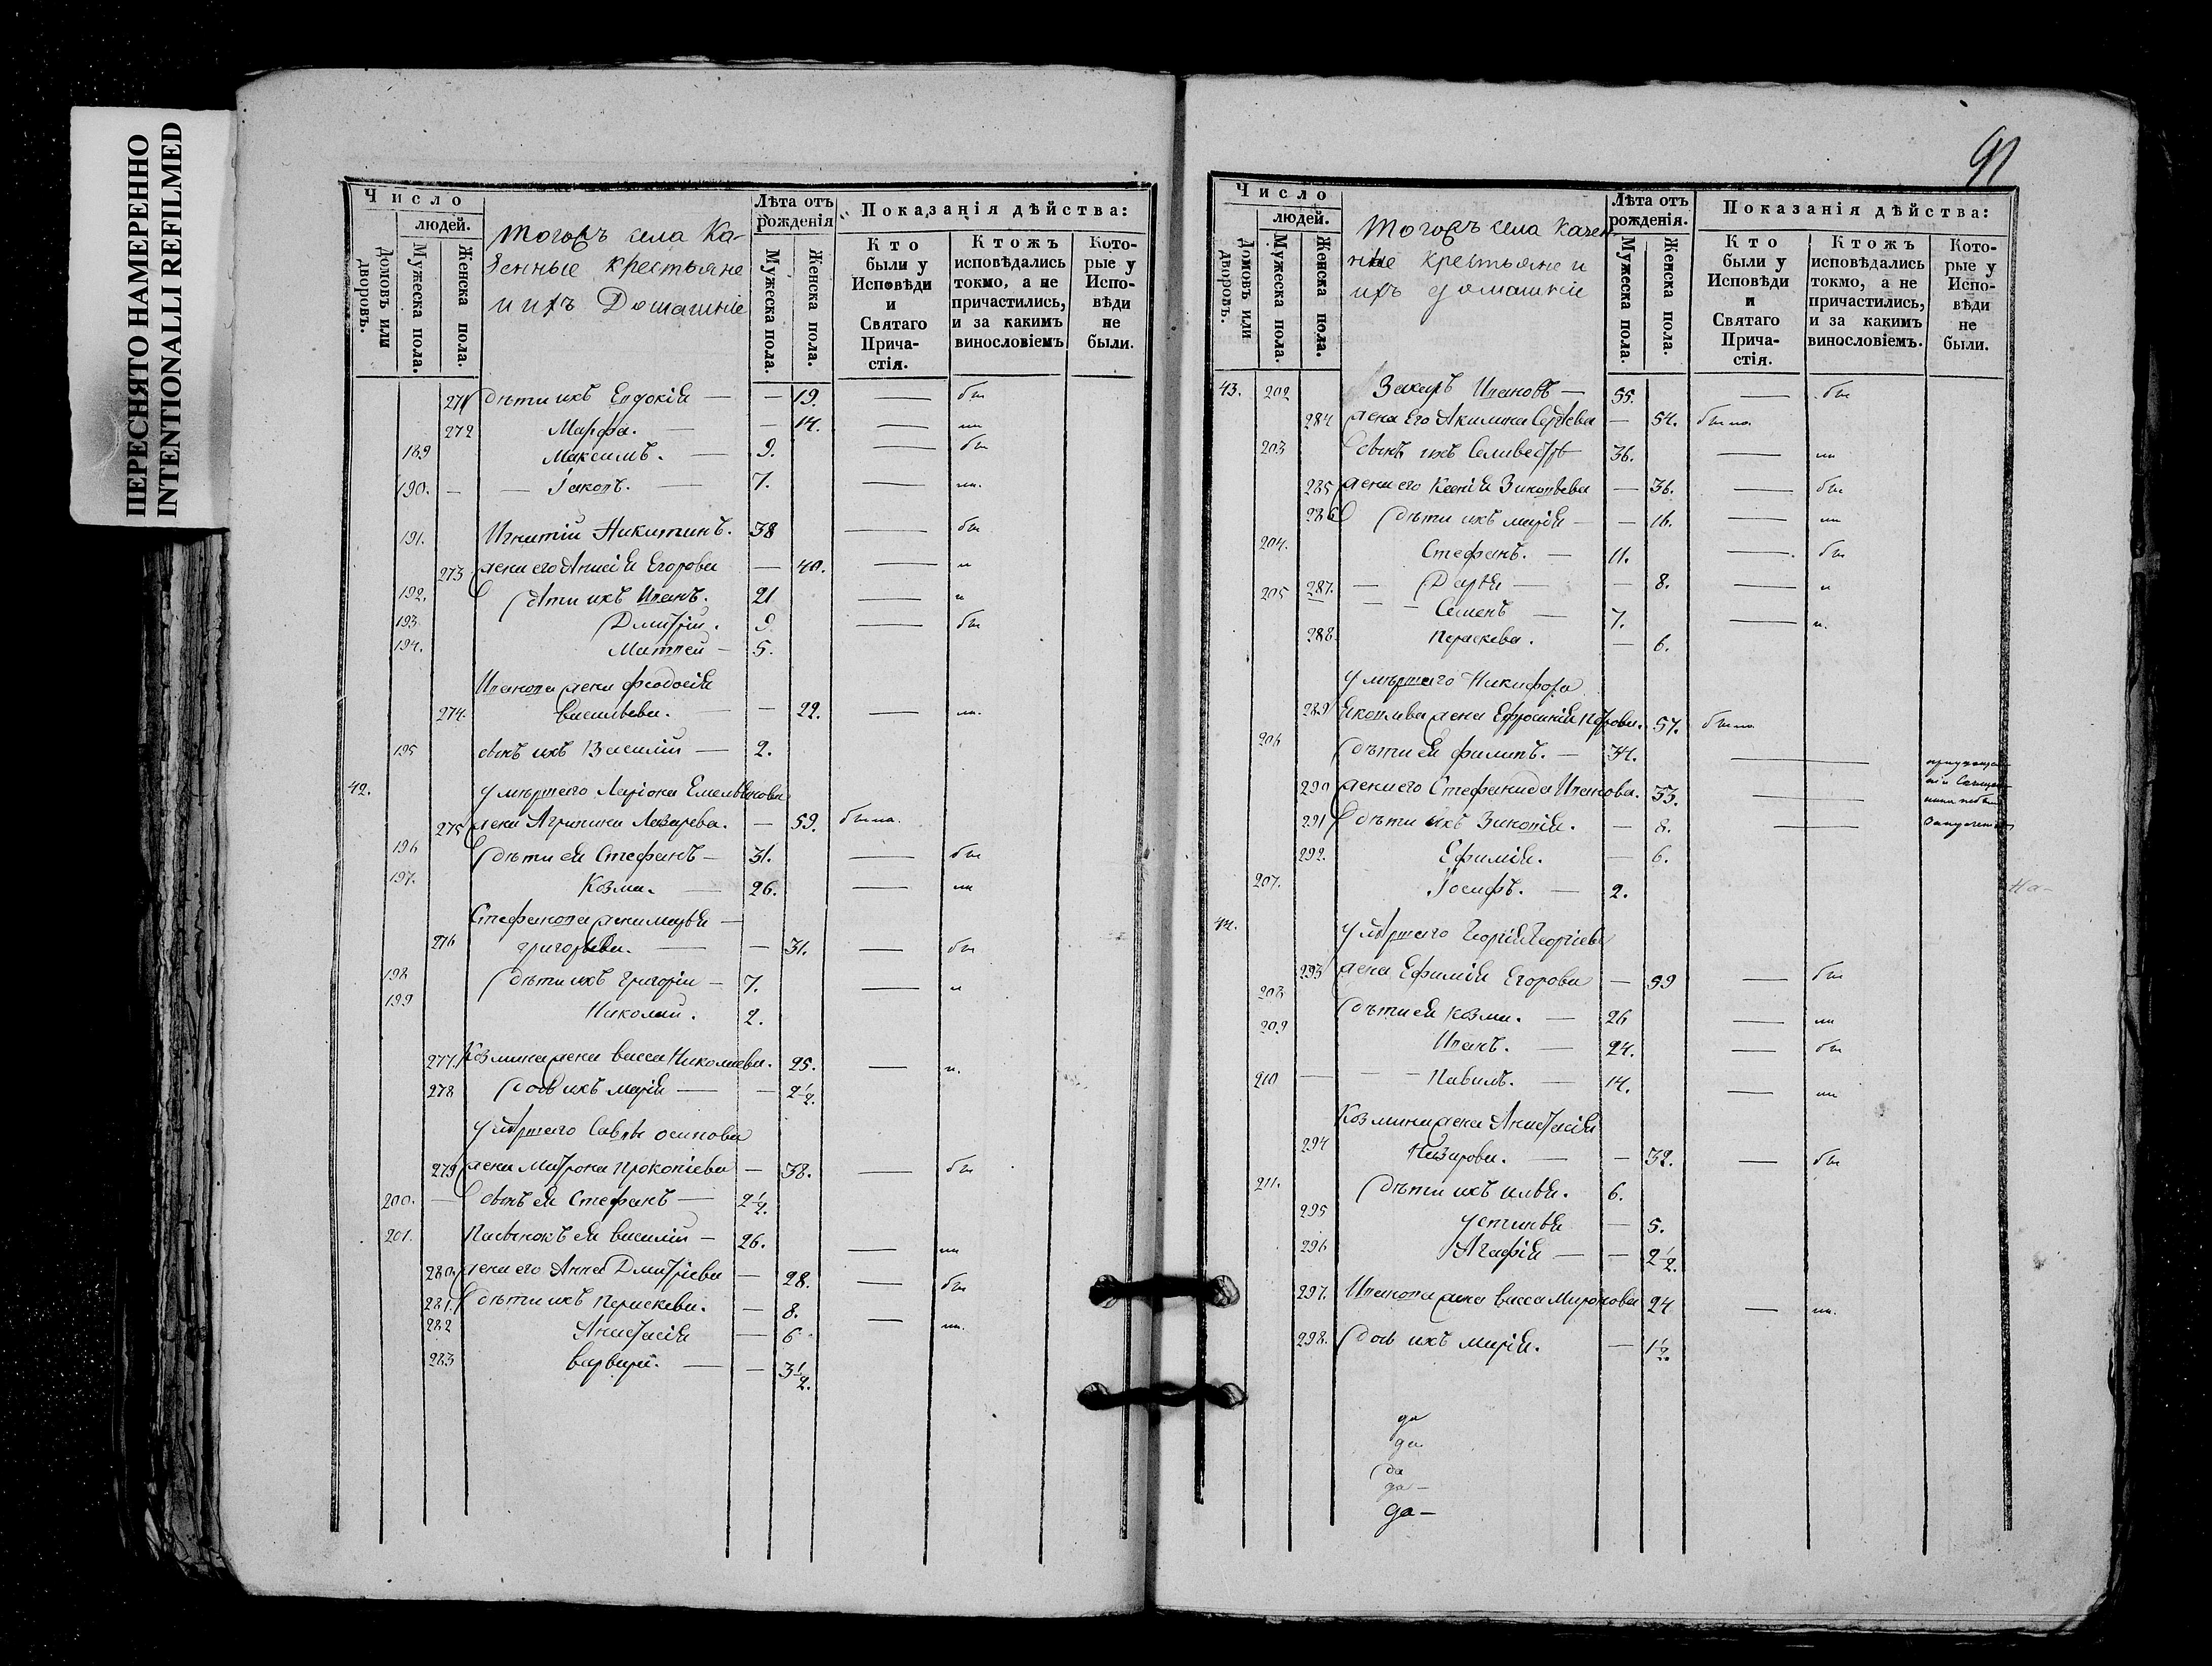 ПЕРЕСНЯТО НАМЕРЕННО
INTENTIONALLI REFILMED
Число
людей.
Домовъ или дворовъ.
Мужеска пола.
Женска пола.
Тогожъ села Ка-
зенные крестьяне
и ихъ Домашніе
Лѣта отъ рожденія
Мужеска пола.
Женска пола.
Показанія дѣйства:
Кто были у Исповѣди и Святаго Прича-стія.
Ктожъ исповѣдались токмо, а не причастились, и за какимъ винословіемъ
Кото-рые у Испо-вѣди не были.
271 дѣти ихъ Евдокія — — 19. — бы
272 Марфа. — — 14. —
189 Максимъ. — 9. — бы
190. — — Іаковъ. — 7. —
191. Игнатій Никитинъ. 38 — бы
273 жена его Анисія Егорова — 40. —
192. дѣти ихъ Иванъ. 21 —
193 Дмитрій. 9 — бы
194. Матвей — 5.
Иванова жена Феодосія
274. Васильева. — — 22. —
195 сынъ ихъ Василій — 2.
42. умершаго Ларіона Емельянова
275 жена Агрипина Лазарева. — 59. была.
196 дѣти ея Стефанъ — 31. — бы
197. Козма. — 26. —
Стефанова жена Марѳа —
276 Григорьева. — — 31. — бы
198 дѣти ихъ Григорій — 7. —
199 Николай. 2.
277. Козмина жена Васса Николаева. 25. —
278 дочь ихъ Марія — — 2½.
умершаго Савы Осипова
279 жена Матрона Прокопіева — 38. — бы
200. — сынъ ея Стефанъ — 2½.
201. Пасынокъ ея Василій — 26. —
280. жена его Анна Дмитріева — 28. — бы
281. дѣти ихъ Параскева. — 8. —
282 Анастасія — 6.
283 Варвара. — — 3½.
91
Число
людей.
Домовъ или дворовъ.
Мужеска пола.
Женска пола.
Тогожъ села казен-
ные крестьяне и
ихъ домашніе
Лѣта отъ рожденія.
Мужеска пола.
Женска пола.
Показанія дѣйства:
Кто были у Исповѣди и Святаго Прича-стія.
Ктожъ исповѣдались токмо, а не причастились, и за какимъ винословіемъ.
Кото-рые у Испо-вѣди не были.
43. 202 Захаръ Ивановъ — 55. — бы
284 жена Его Акилина Сергѣева — 54. была
203 сынъ ихъ Селивестръ 36. —
285 жена его Ксенія Зиновьева — 36. — бы
286 дѣти ихъ Марія — — 16. —
204. Стефанъ. — 11. — бы
287. — Дарья — — 8. —
205 — — Семенъ — 7. —
288. Параскева. — 6.
умершаго Никифора
289 Яковлева жена Ефросинія Петрова. 57. была
206 дѣти ея Филипъ. — 34. —
290 жена его Стефанида Иванова. 33. —
291 дѣти ихъ Зиновія. — 8. —
292. Ефимія. — 6.
207. Іосифъ. — 2.
На-
44. умершаго Георгія Георгіева
293 жена Ефимія Егорова — 59 — бы
208 дѣти ея Козма. — 26 —
209 Иванъ. — 24. — бы
210 — — — Павилъ. — 14. —
Козмина жена Анастасія
294 Назарова. — — 32. — бы
211. дѣти ихъ Илья. 6.
295 Устинья — 5.
296 Агафія — — 2½.
297. Иванова жена Васса Миронова 24 —
298. дочь ихъ Марія. — 1½.
да
да
да
да —
да —